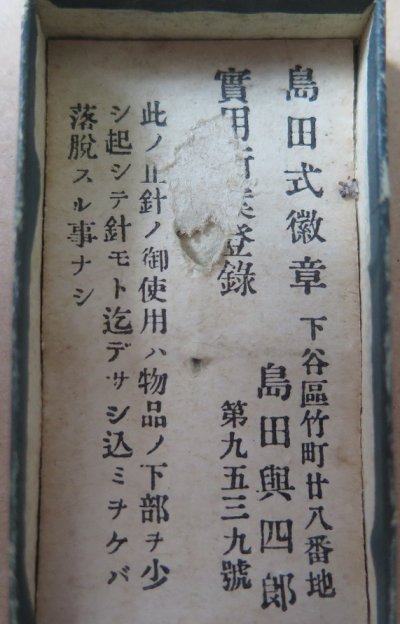 島田式徽章
下谷區竹町廿八番地
島田與四郎
實用新案登錄
第九五三九號
此ノ止針ノ御使用ハ物品ノ下部ヲ少
シ起シテ針モト迄デサシ込ミヲケバ
落脫スル事ナシ